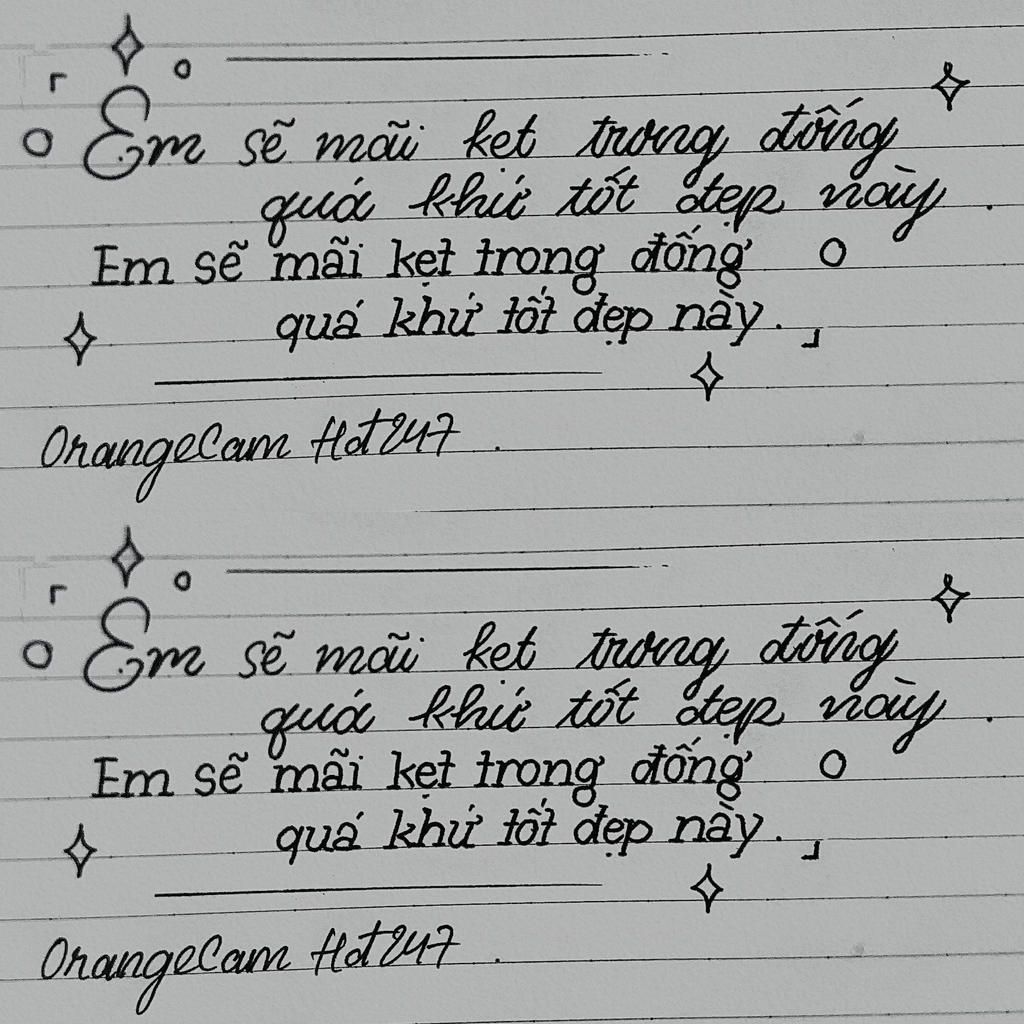 Em sẽ mãi kẹt trong đống
quá khứ tốt đẹp này.
Em sẽ mãi kẹt trong đống
quá khứ tốt đẹp này.
OrangeCam Hot247.
Em sẽ mãi kẹt trong đống
quá khứ tốt đẹp này.
Em sẽ mãi kẹt trong đống
quá khứ tốt đẹp này.
OrangeCam Hot247.